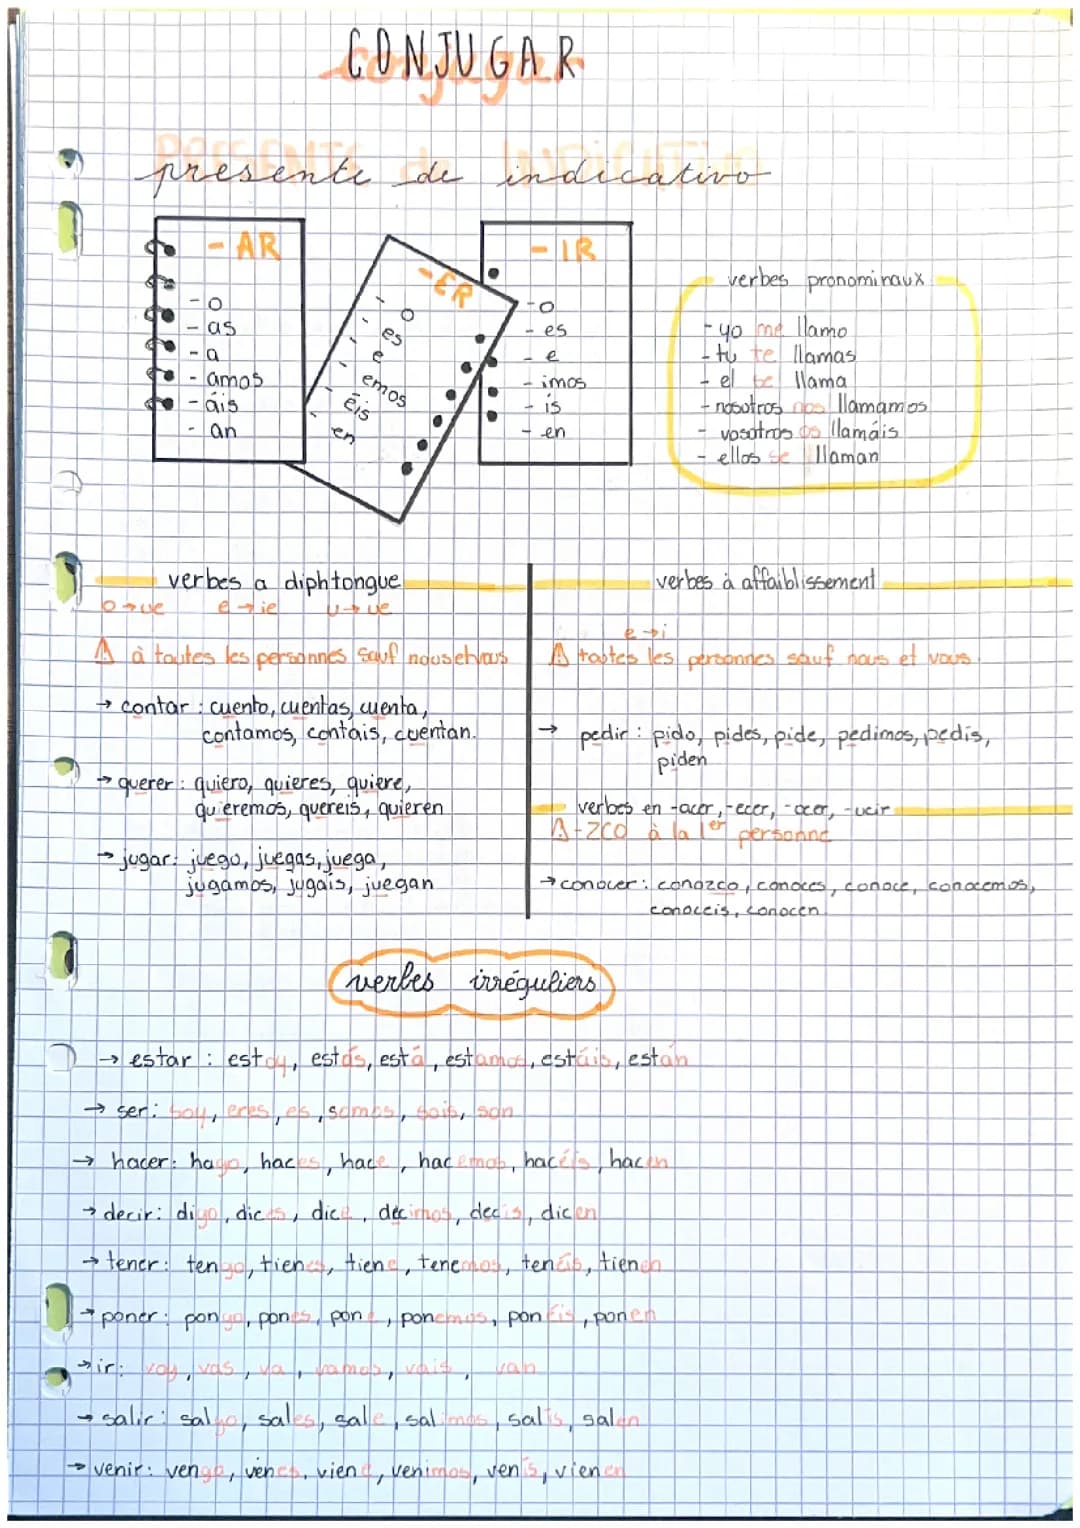 CONJUGAR
presente de indicativo
- AR
- o
- as
- a
- amos
- áis
- an
- ER
- o
- es
- e
- emos
- éis
- en
- IR
- o
- es
- e
- imos
- is
- en
verbes pronominaux
- yo me llamo
- tu te llamas
- el se llama
- nosotros nos llamamos
- vosotros os llamáis
- ellos se llaman
verbes a diphtongue
o → ue e → ie u → ue
⚠ à toutes les personnes sauf nous et vous
→ contar : cuento, cuentas, cuenta,
contamos, contais, cuentan.
→ querer : quiero, quieres, quiere,
queremos, quereis, quieren
→ jugar : juego, juegas, juega,
jugamos, jugais, juegan
verbes à affaiblissement
e → i
⚠ toutes les personnes sauf nous et vous.
→ pedir : pido, pides, pide, pedimos, pedis,
piden
verbes en -acer, -ecer, -ocer, -ucir
⚠ -zco à la 1er personne
→ conocer : conozco, conoces, conoce, conocemos,
conoceis, conocen.
verbes irréguliers
→ estar : estoy, estás, está, estamos, estáis, están
→ ser : soy, eres, es, somos, sois, son
→ hacer : hago, haces, hace, hacemos, hacéis, hacen
→ decir : digo, dices, dice, decimos, decis, dicen
→ tener : tengo, tienes, tiene, tenemos, tenéis, tienen
→ poner : pongo, pones, pone, ponemos, ponéis, ponen
→ ir : voy, vas, va, vamos, vais, van
→ salir : salgo, sales, sale, salimos, salís, salen
→ venir : vengo, vénes, viene, venimos, venís, vienen